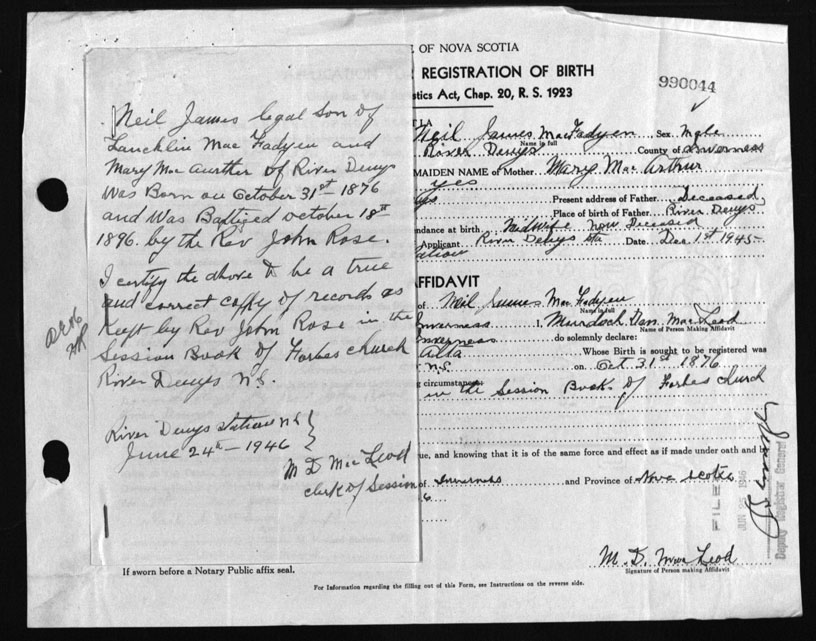 Neil James legal son of
Laucklin Mac Fadyen and
Mary Mac Aurther of River Denys
Was Born on October 31st 1876
and Was Baptized october 18th
1896. by the Rev John Rose.
I certify the above to be a true
and correct copy of records as
Kept by Rev John Rose in the
Session Book of Forbes church
River Denys N.S.
River Denys Station N.S.
June 24th - 1946
M D Mac Leod
clerk of Session
E OF NOVA SCOTIA
REGISTRATION OF BIRTH
stics Act, Chap. 20, R. S. 1923
990044
TIA
Neil James MacFadyen Sex Male
Name in full
River Denys County of Inverness
MAIDEN NAME of Mother Mary Mac Arthur
yes
ys Present address of Father Deceased
Place of birth of Father River Denys
ndance at birth Midwife now Deceased
Applicant River Denys Sta Date Dec 1st 1945
ation
FFIDAVIT
of Neil James Mac Fadyen
Name in full
Inverness I, Murdoch Dan. MacLeod
Name of Person Making Affidavit
Inverness do solemnly declare:
Whose Birth is sought to be registered was
N.S. on Oct. 31st 1876
ng circumstances:
in the Session Book. of Forbes church
ue, and knowing that it is of the same force and effect as if made under oath and by
of Inverness and Province of Nova Scotia
6
FILED
JUN 25 1946
Deputy Registrar General
M. D. Mac Leod
Signature of Person making Affidavit
If sworn before a Notary Public affix seal.
For Information regarding the filling out of this Form, see Instructions on the reverse side.